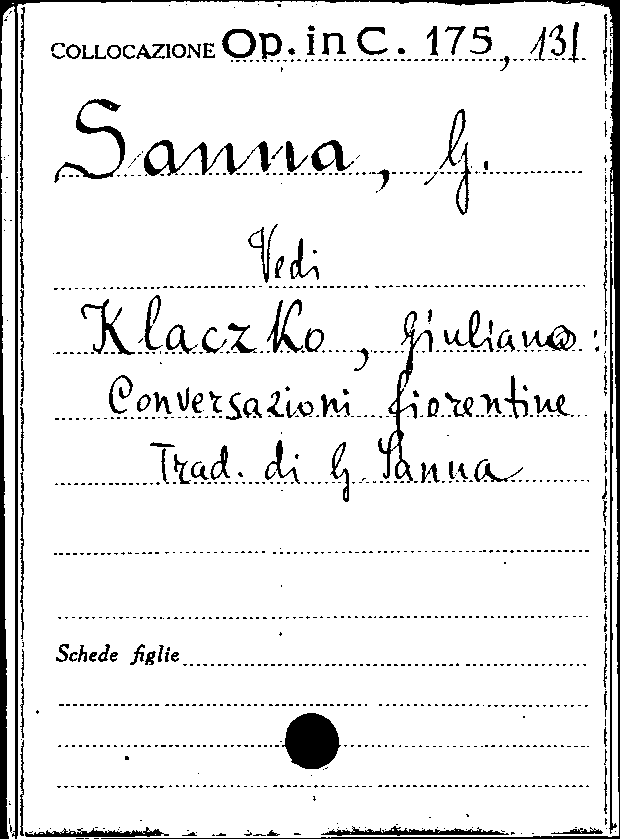 COLLOCAZIONE Op. in C. 175, 131
Sanna, G.
Vedi
Klaczko, Giuliano:
Conversazioni fiorentine
Trad. di G. Sanna
Schede figlie